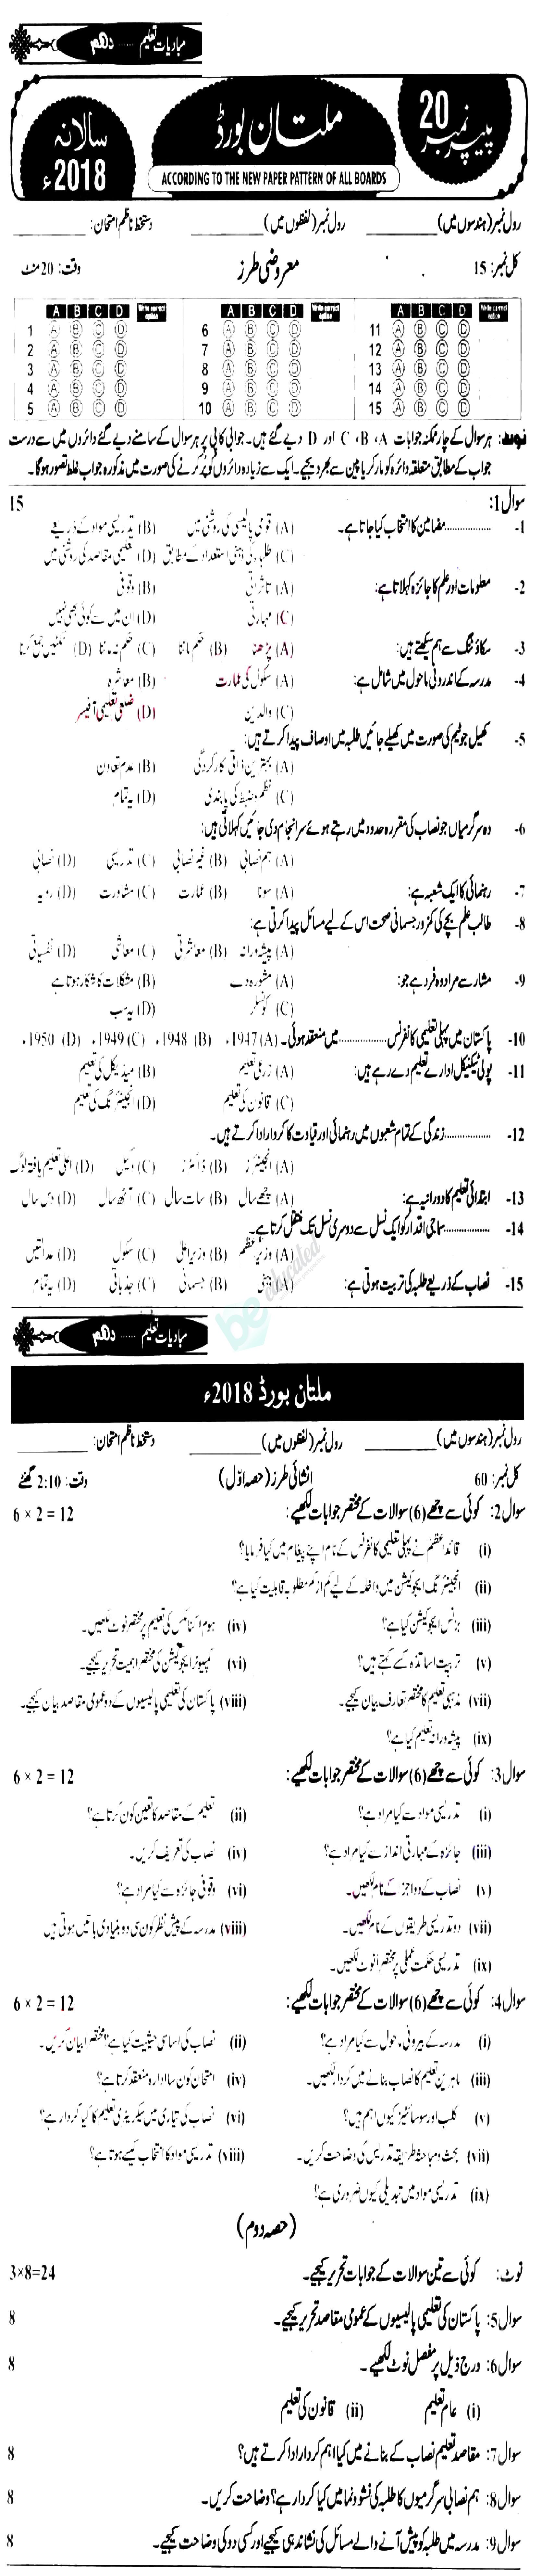 مبادیات تعلیم ...... دہم
پیپر نمبر 20
ملتان بورڈ
سالانہ 2018ء
ACCORDING TO THE NEW PAPER PATTERN OF ALL BOARDS
رول نمبر (ہندسوں میں) ________ رول نمبر (لفظوں میں) ________ دستخط ناظم امتحان: ________
کل نمبر: 15 معروضی طرز وقت: 20 منٹ
A B C D Write correct option A B C D Write correct option A B C D Write correct option
1 A B C D 6 A B C D 11 A B C D
2 A B C D 7 A B C D 12 A B C D
3 A B C D 8 A B C D 13 A B C D
4 A B C D 9 A B C D 14 A B C D
5 A B C D 10 A B C D 15 A B C D
نوٹ: ہر سوال کے چار ممکنہ جوابات A، B، C اور D دیے گئے ہیں۔ جوابی کاپی پر ہر سوال کے سامنے دیے گئے دائروں میں سے درست
جواب کے مطابق متعلقہ دائرہ کو مارکر یا پین سے بھر دیجیے۔ ایک سے زیادہ دائروں کو پُر کرنے کی صورت میں مذکورہ جواب غلط تصور ہوگا۔
سوال 1: 15
1- ............... مضامین کا انتخاب کیا جاتا ہے۔ (A) قومی پالیسی کی روشنی میں (B) تدریسی مواد کے ذریعے
(C) طلبہ کی ذہنی استعداد کے مطابق (D) تعلیمی مقاصد کی روشنی میں
2- معلومات اور علم کا جائزہ کہلاتا ہے: (A) تاثراتی (B) وقوفی
(C) مہارتی (D) ان میں سے کوئی بھی نہیں
3- سکاؤٹنگ سے ہم سیکھتے ہیں: (A) پڑھنا (B) حکم ماننا (C) حکم نہ ماننا (D) ٹکٹیں جمع کرنا
4- مدرسہ کے اندرونی ماحول میں شامل ہے: (A) سکول کی عمارت (B) معاشرہ
(C) والدین (D) ضلعی تعلیمی آفیسر
5- کھیل جو ٹیم کی صورت میں کھیلے جائیں طلبہ میں اوصاف پیدا کرتے ہیں:
(A) بہترین ذاتی کارکردگی (B) عدم تعاون
(C) نظم و ضبط کی پابندی (D) یہ تمام
6- وہ سرگرمیاں جو نصاب کی مقررہ حدود میں رہتے ہوئے سرانجام دی جائیں کہلاتی ہیں:
(A) ہم نصابی (B) غیر نصابی (C) تدریسی (D) نصابی
7- رہنمائی کا ایک شعبہ ہے: (A) سونا (B) عمارت (C) مشاورت (D) رویہ
8- طالب علم بچے کی کمزور جسمانی صحت اس کے لیے مسائل پیدا کرتی ہے:
(A) پیشہ ورانہ (B) معاشرتی (C) معاشی (D) نفسیاتی
9- مشار سے مراد وہ فرد ہے جو: (A) مشورہ دے (B) مشکلات کا شکار ہوتا ہے
(C) کونسلر (D) یہ سب
10- پاکستان میں پہلی تعلیمی کانفرنس ............... میں منعقد ہوئی۔ (A) 1947ء (B) 1948ء (C) 1949ء (D) 1950ء
11- پولی ٹیکنیکل ادارے تعلیم دے رہے ہیں: (A) زرعی تعلیم (B) میڈیکل کی تعلیم
(C) قانون کی تعلیم (D) انجینئرنگ کی تعلیم
12- ............... زندگی کے تمام شعبوں میں رہنمائی اور قیادت کا کردار ادا کرتے ہیں۔
(A) انجینئرز (B) ڈاکٹرز (C) وکیل (D) اعلیٰ تعلیم یافتہ لوگ
13- ابتدائی تعلیم کا دورانیہ ہے: (A) چھے سال (B) سات سال (C) آٹھ سال (D) دس سال
14- ............... سماجی اقدار کو ایک نسل سے دوسری نسل تک منتقل کرتا ہے۔
(A) وزیراعظم (B) وزیراعلیٰ (C) سکول (D) عدالتیں
15- نصاب کے ذریعے طلبہ کی تربیت ہوتی ہے: (A) ذہنی (B) جسمانی (C) جذباتی (D) یہ تمام
be educated
مبادیات تعلیم ...... دہم
ملتان بورڈ 2018ء
رول نمبر (ہندسوں میں) ________ رول نمبر (لفظوں میں) ________ دستخط ناظم امتحان: ________
کل نمبر: 60 انشائی طرز (حصہ اوّل) وقت: 2:10 گھنٹے
سوال 2: کوئی سے چھے (6) سوالات کے مختصر جوابات لکھیے: 6 × 2 = 12
(i) قائداعظمؒ نے پہلی تعلیمی کانفرنس کے نام اپنے پیغام میں کیا فرمایا؟
(ii) انجینئرنگ ایجوکیشن میں داخلہ کے لیے کم از کم مطلوبہ قابلیت کیا ہے؟
(iii) بزنس ایجوکیشن کیا ہے؟ (iv) ہوم اکنامکس کی تعلیم پر مختصر نوٹ لکھیں۔
(v) تربیت اساتذہ کسے کہتے ہیں؟ (vi) کمپیوٹر ایجوکیشن کی مختصر اہمیت تحریر کیجیے۔
(vii) مذہبی تعلیم کا مختصر تعارف بیان کیجیے۔ (viii) پاکستان کی تعلیمی پالیسیوں کے دو عمومی مقاصد بیان کیجیے۔
(ix) پیشہ ورانہ تعلیم کیا ہے؟
سوال 3: کوئی سے چھے (6) سوالات کے مختصر جوابات لکھیے: 6 × 2 = 12
(i) تدریسی مواد سے کیا مراد ہے؟ (ii) تعلیم کے مقاصد کا تعین کون کرتا ہے؟
(iii) جائزہ کے مہارتی انداز سے کیا مراد ہے؟ (iv) نصاب کی تعریف کریں۔
(v) نصاب کے دو اجزا کے نام لکھیں۔ (vi) وقوفی جائزہ سے کیا مراد ہے؟
(vii) دو تدریسی طریقوں کے نام لکھیں۔ (viii) مدرسہ کے پیش نظر کون سی دو بنیادی باتیں ہوتی ہیں
(ix) تدریسی حکمت عملی پر مختصراً نوٹ لکھیں۔
سوال 4: کوئی سے چھے (6) سوالات کے مختصر جوابات لکھیے: 6 × 2 = 12
(i) مدرسہ کے بیرونی ماحول سے کیا مراد ہے؟ (ii) نصاب کی اساسی حیثیت کیا ہے؟ مختصراً بیان کریں۔
(iii) ماہرین تعلیم کا نصاب بنانے میں کردار لکھیں۔ (iv) امتحان کون سا ادارہ منعقد کرتا ہے؟
(v) کلب اور سوسائٹیز کیوں اہم ہیں؟ (vi) نصاب کی تیاری میں سیکریٹری تعلیم کا کیا کردار ہے؟
(vii) بحث و مباحثہ طریقہ تدریس کی وضاحت کریں۔ (viii) تدریسی مواد کا انتخاب کیسے ہوتا ہے؟
(ix) تدریسی مواد میں تبدیلی کیوں ضروری ہے؟
(حصہ دوم)
نوٹ: کوئی سے تین سوالات کے جوابات تحریر کیجیے۔ 3×8=24
سوال 5: پاکستان کی تعلیمی پالیسیوں کے عمومی مقاصد تحریر کیجیے۔ 8
سوال 6: درج ذیل پر مفصل نوٹ لکھیے۔ 8
(i) عام تعلیم (ii) قانون کی تعلیم
سوال 7: مقاصد تعلیم نصاب کے بنانے میں کیا اہم کردار ادا کرتے ہیں؟ 8
سوال 8: ہم نصابی سرگرمیوں کا طلبہ کی نشوونما میں کیا کردار ہے؟ وضاحت کریں۔ 8
سوال 9: مدرسہ میں طلبہ کو پیش آنے والے مسائل کی نشاندہی کیجیے اور کسی دو کی وضاحت کیجیے۔ 8